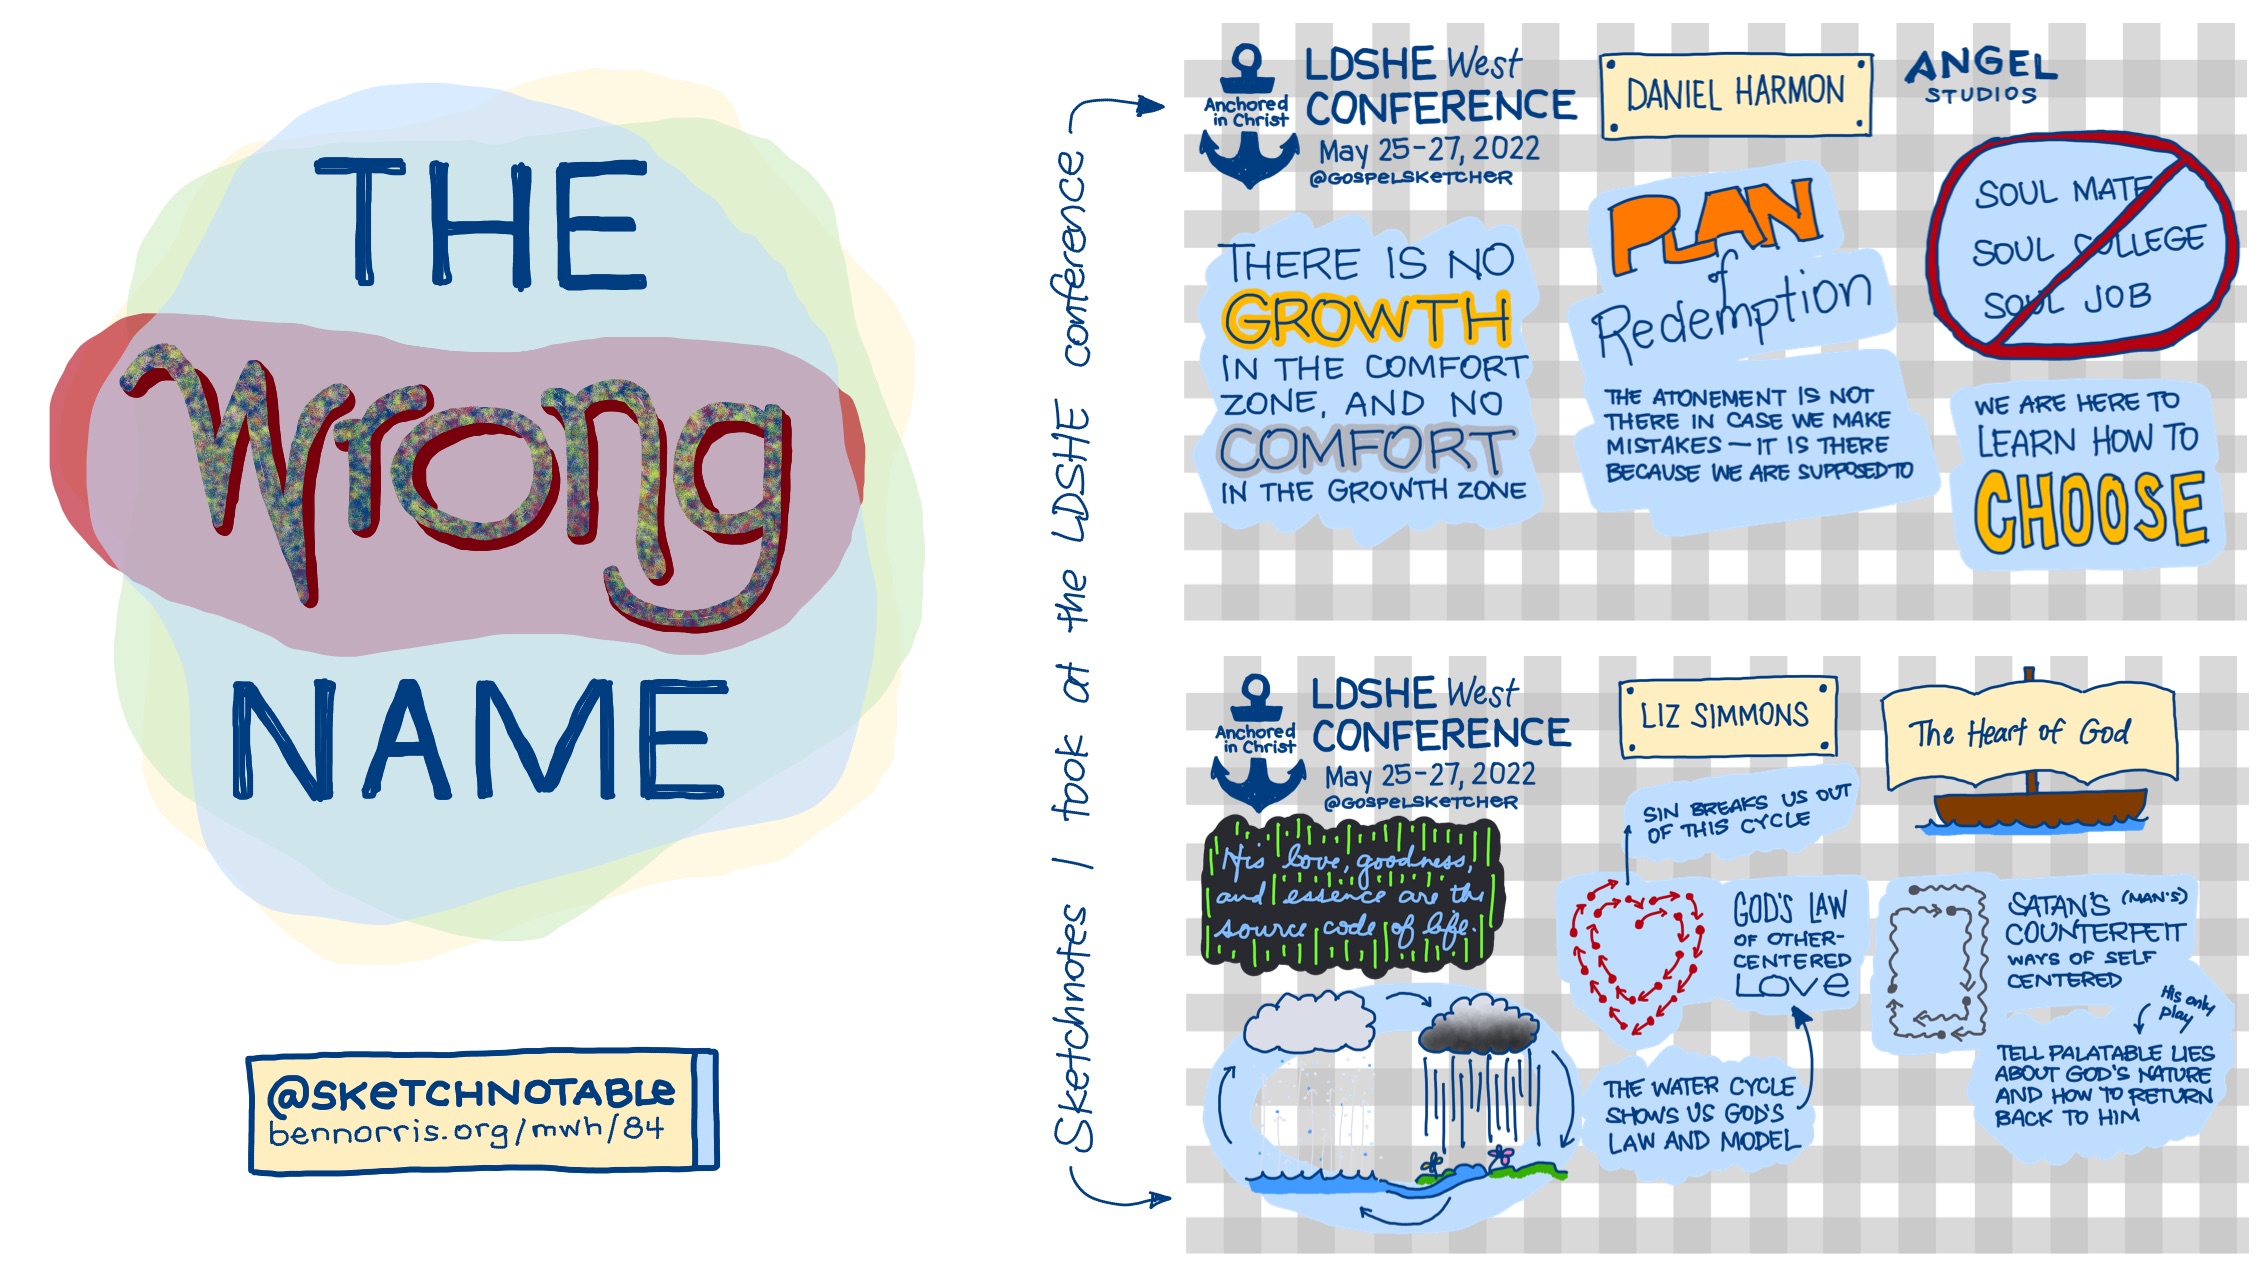 THE
Wrong
NAME
@SKETCHNOTABLE
bennorris.org/mwh/84
Sketchnotes I took at the LDSHE conference
Anchored
in Christ
LDSHE West
CONFERENCE
May 25-27, 2022
@GOSPELSKETCHER
DANIEL HARMON
ANGEL
STUDIOS
THERE IS NO
GROWTH
IN THE COMFORT
ZONE, AND NO
COMFORT
IN THE GROWTH ZONE
PLAN
of
Redemption
THE ATONEMENT IS NOT
THERE IN CASE WE MAKE
MISTAKES — IT IS THERE
BECAUSE WE ARE SUPPOSED TO
SOUL MATE
SOUL COLLEGE
SOUL JOB
WE ARE HERE TO
LEARN HOW TO
CHOOSE
Anchored
in Christ
LDSHE West
CONFERENCE
May 25-27, 2022
@GOSPELSKETCHER
LIZ SIMMONS
The Heart of God
His love, goodness,
and essence are the
source code of life.
SIN BREAKS US OUT
OF THIS CYCLE
GOD'S LAW
OF OTHER-
CENTERED
LOVE
THE WATER CYCLE
SHOWS US GOD'S
LAW AND MODEL
SATAN'S (MAN'S)
COUNTERFEIT
WAYS OF SELF
CENTERED
His only
play
TELL PALATABLE LIES
ABOUT GOD'S NATURE
AND HOW TO RETURN
BACK TO HIM